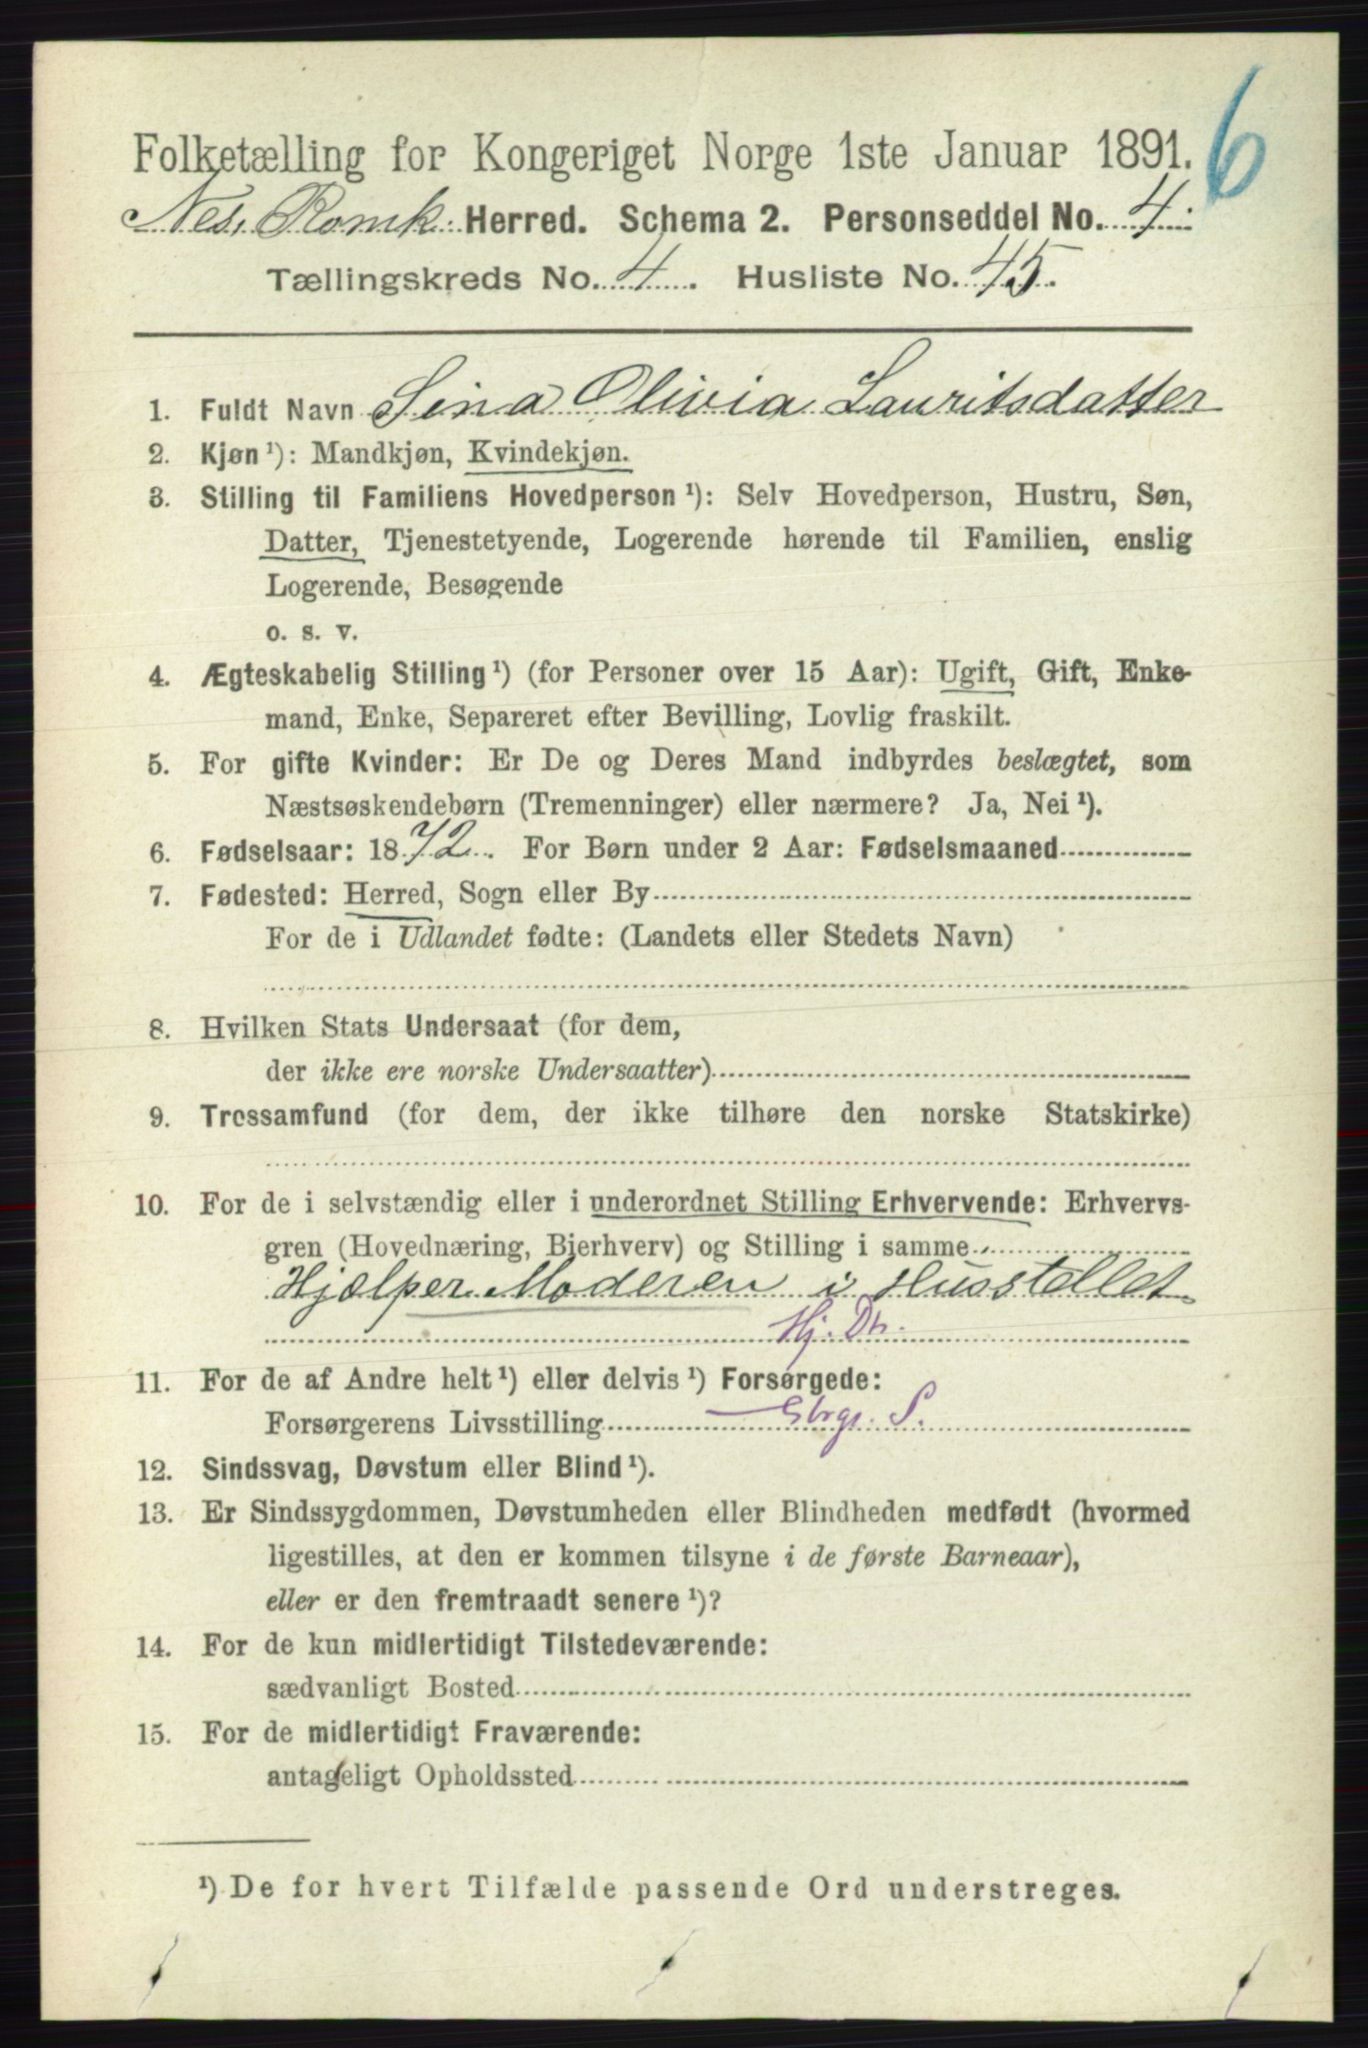 6
Folketælling for Kongeriget Norge 1ste Januar 1891.
Nes, Romk. Herred. Schema 2. Personseddel No. 4.
Tællingskreds No. 4. Husliste No. 45.
1. Fuldt Navn Sina Olivia Lauritsdatter
2. Kjøn ¹): Mandkjøn, Kvindekjøn.
3. Stilling til Familiens Hovedperson ¹): Selv Hovedperson, Hustru, Søn,
Datter, Tjenestetyende, Logerende hørende til Familien, enslig
Logerende, Besøgende
o. s. v.
4. Ægteskabelig Stilling ¹) (for Personer over 15 Aar): Ugift, Gift, Enke-
mand, Enke, Separeret efter Bevilling, Lovlig fraskilt.
5. For gifte Kvinder: Er De og Deres Mand indbyrdes beslægtet, som
Næstsøskendebørn (Tremenninger) eller nærmere? Ja, Nei ¹).
6. Fødselsaar: 1872. For Børn under 2 Aar: Fødselsmaaned
7. Fødested: Herred, Sogn eller By
For de i Udlandet fødte: (Landets eller Stedets Navn)
8. Hvilken Stats Undersaat (for dem,
der ikke ere norske Undersaatter)
9. Trossamfund (for dem, der ikke tilhøre den norske Statskirke)
10. For de i selvstændig eller i underordnet Stilling Erhvervende: Erhvervs-
gren (Hovednæring, Bierhverv) og Stilling i samme
Hjælper Moderen i Husstellet
Hj. Dtr.
11. For de af Andre helt ¹) eller delvis ¹) Forsørgede:
Forsørgerens Livsstilling Gbrgr. S.
12. Sindssvag, Døvstum eller Blind ¹).
13. Er Sindssygdommen, Døvstumheden eller Blindheden medfødt (hvormed
ligestilles, at den er kommen tilsyne i de første Barneaar),
eller er den fremtraadt senere ¹)?
14. For de kun midlertidigt Tilstedeværende:
sædvanligt Bosted
15. For de midlertidigt Fraværende:
antageligt Opholdssted
¹) De for hvert Tilfælde passende Ord understreges.